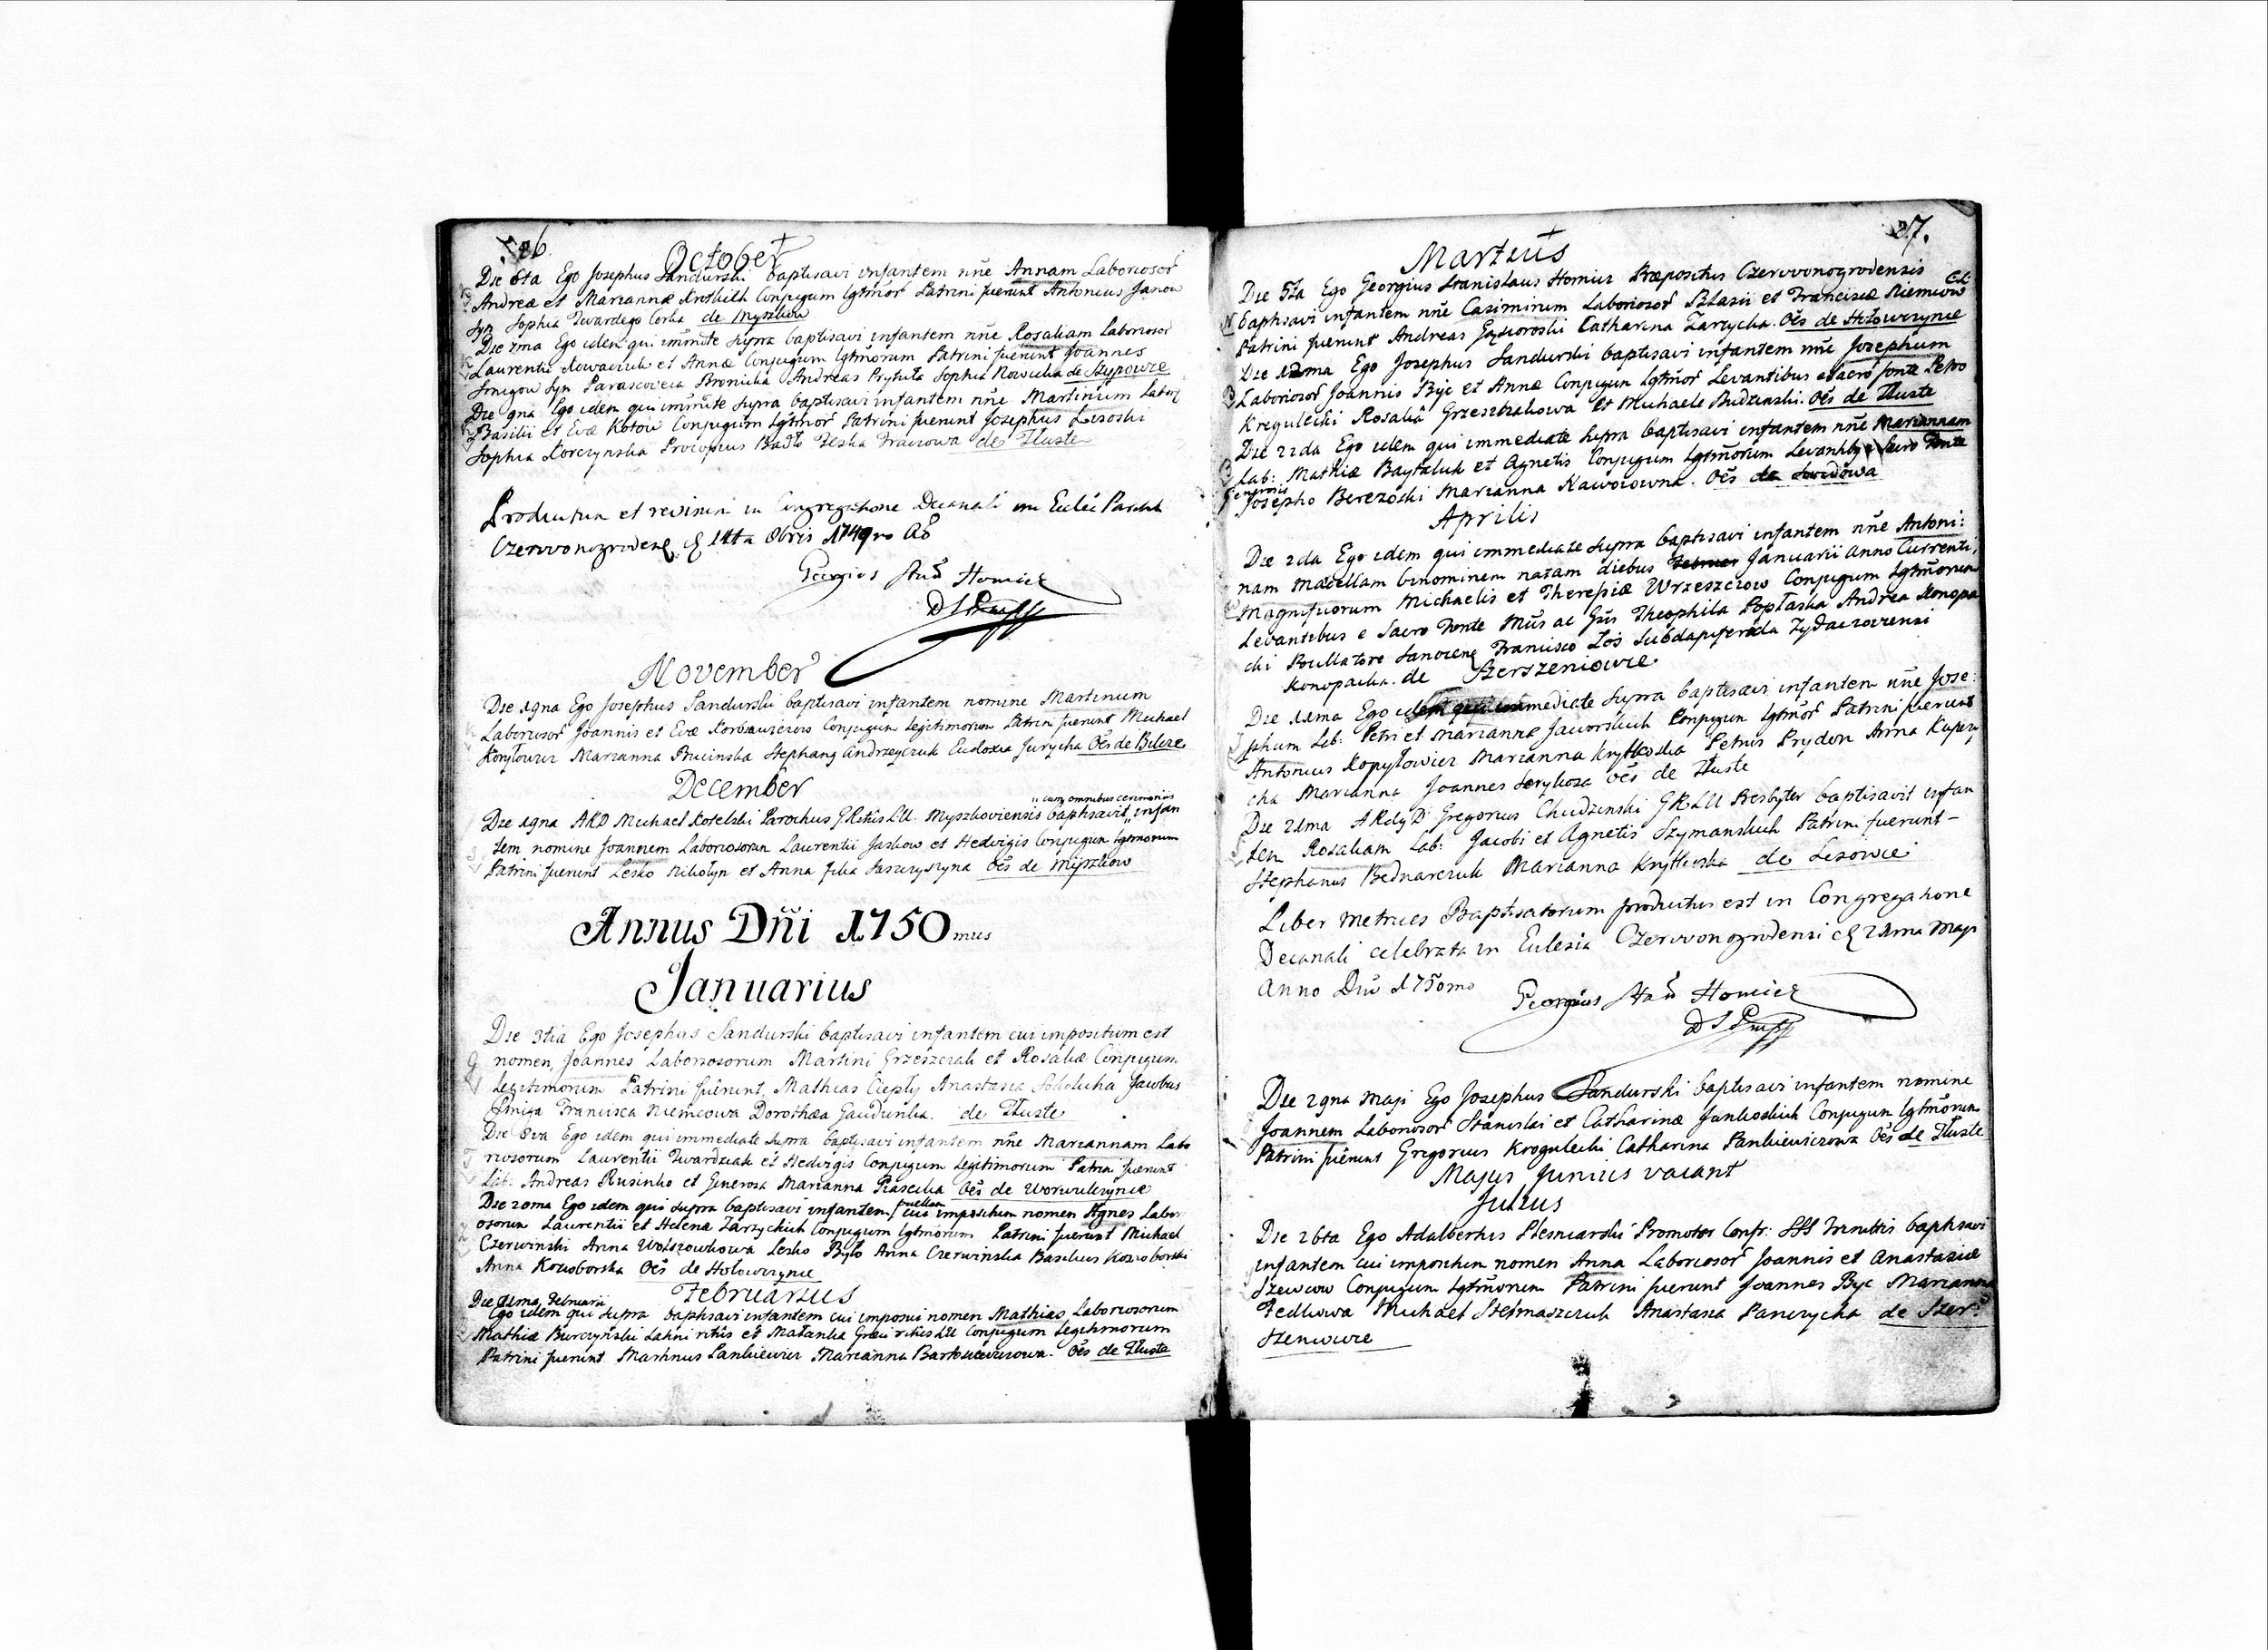 26.
October
Die 6ta Ego Josephus Sandurski baptisavi infantem nñe Annam Laboriosoř
Andreæ et Mariannæ Conjugum lgtmoř Patrini fuerunt Antonius Janow
Syn Sophia Twardego Corka de Myszkow
Die 7ma Ego idem qui immte supra baptisavi infantem nñe Rosaliam Laboriosoř
Laurentii Kowalczuk et Annæ Conjugum lgtmorum Patrini fuerunt Joannes
Syn Parascovia Bronicha Andreas Prytuła Sophia Nowicka de Szypowce
Die 9na Ego idem qui immte supra baptisavi infantem nñe Martinum Labor
Basilii et Evæ Kotow Conjugum lgtmoř Patrini fuerunt Josephus Lesoski
Sophia Korczynska Procopius Badło de Tłuste
Productum et revisum in Congregatione Decanali in Eccłéi
14ta 8bris 1749no
Georgius Homicz
November
Die 19na Ego Josephus Sandurski baptisavi infantem nomine Martinum
Laboriosoř Joannis et Evæ Conjugum Legitimorum Patrini fuerunt Michael
Kopyłowicz Marianna Stephang Andrzeyczuk Eudoxia Jurycha Oẽs de Bilcze
December
Die 19na AKD Michael Koselski Parochus G.Ritûs L.U. Myszkoviensis baptisavit, cum omnibus ceremoniis infan
tem nomine Joannem Laboriosorum Laurentii Jaskow et Hedvigis Conjugum lgtmorum
Patrini fuerunt Lesko et Anna filia Oẽs de Myszkow
Annus Dñi 1750mus
Januarius
Die 3tia Ego Josephus Sandurski baptisavi infantem cui impositum est
nomen, Joannes Laboriosorum Martini Grzeszczak et Rosaliæ Conjugum
Legitimorum Patrini fuêrunt, Mathias Ciepły Anastasia Jacobus
Smiga Francisca Niemcowa Dorothæa de Tłuste
Die 8va Ego idem qui immediate supra baptisavi infantem nñe Mariannam Labo
riosorum Laurentii Twardziak et Hedvigis Conjugum Legitimorum Patrin fuerunt
Lab: Andreas Rusinko et Generosa Marianna Piasecka Oẽs de Worwulińce
Die 20ma Ego idem qui supra baptisavi infantem, puellam cui impositum nomen Agnes Labor
osorum Laurentii et Helenæ Zarzyckich Conjugum lgtmorum Patrini fuerunt Michael
Czerwinski Anna Lesko Było Anna Czerwinska Basilius Kozioborski
Anna Kozioborska Oẽs de Hołowczynce
Februarius
Die 11ma Februarii
Ego idem qui supra baptisavi infantem cui imposui nomen Mathias Laboriosorum
Mathiæ Burczynski Latini ritûs et Małanka Græci ritûs L.U. Conjugum Legitimorum
Patrini fuerunt Martinus Pankiewicz Marianna Oẽs de Tłuste
27.
Martius
Die 5ta Ego Georgius Stanislaus Homicz Præpositus Czerwonogrodensis
baptisavi infantem nñe Casimirum Laboriosoř Blasii et Franciscæ Niemcow
Patrini fuerunt Andreas Gąsioroski Catharina Zarzycka. Oẽs de Hołowczynce
Die 12ma Ego Josephus Sandurski baptisavi infantem nñe Josephum
Laboriosoř Joannis Byc et Annæ Conjugum lgtmoř Levantibus e Sacro fonte Petro
Krogulecki Rosalia Grzeszczakowa et Michaele Budzinski. Oẽs de Tłuste
Die 22da Ego idem qui immediate supra baptisavi infantem nñe Mariannam
Lab: Mathiæ Baytaluk et Agnetis Conjugum lgtmorum Levantibg e Sacro Fonte
Generosis
Josepho Berezoski Marianna Nawoiowna. Oẽs de Swidowa
Aprilis
Die 2da Ego idem qui immediate supra baptisavi infantem nñe Antoni:
nam Marcellam binominem natam diebus Januarii Anno Currenti,
Magnificorum Michaelis et Theresiæ Wrzeszczow Conjugum lgtmorum
Levantibus e Sacro Fonte Theophila Popławska Andrea Konopa
cki Francisco Łoś Subdapiferida Zydaczoviensi
Konopacka. de Szerszeniowce.
Die 11ma Ego idem qui immediate supra baptisavi infantem nñe Jose:
phum Lab: Petri et Mariannæ Jaworskich Conjugum lgtmoř Patrini fuerunt
Antonius Kopyłowicz Marianna Petrus Prydon Anna
cha Marianna Joannes Oẽs de Tłuste
Die 21ma Gregorius Chudzinski G.R.L.U. Presbyter baptisavit infan
tem Rosaliam Lab: Jacobi et Agnetis Szymanskich Patrini fuerunt-
Stephanus Bednarczuk Marianna de Lesowce
Liber Metrices Baptisatorum productus est in Congregatione
Decanali celebrata in Ecclesia Czerwonogrodensi 21ma Maji
Anno Dñi 1750mo
Georgius Homicz
Die 29na Maji Ego Josephus Sandurski baptisavi infantem nomine
Joannem Laboriosoř Stanislai et Catharinæ Jankoskich Conjugum lgtmorum
Patrini fuêrunt Gregorius Krogulecki Catharina Pankiewiczowa Oẽs de Tłuste
Majus Junius vacant
Julius
Die 26ta Ego Adalbertus Plesniarski Promotor Confr: SSS Trinittis baptisavi
infantem cui impositum nomen Anna Laboriosoř Joannis et Anastasiæ
Szewcow Conjugum lgtmorum Patrini fuerunt Joannes Byc Marianna
Fedkowa Michael Stelmaszczuk Anastasia de Szer:
szeniowce